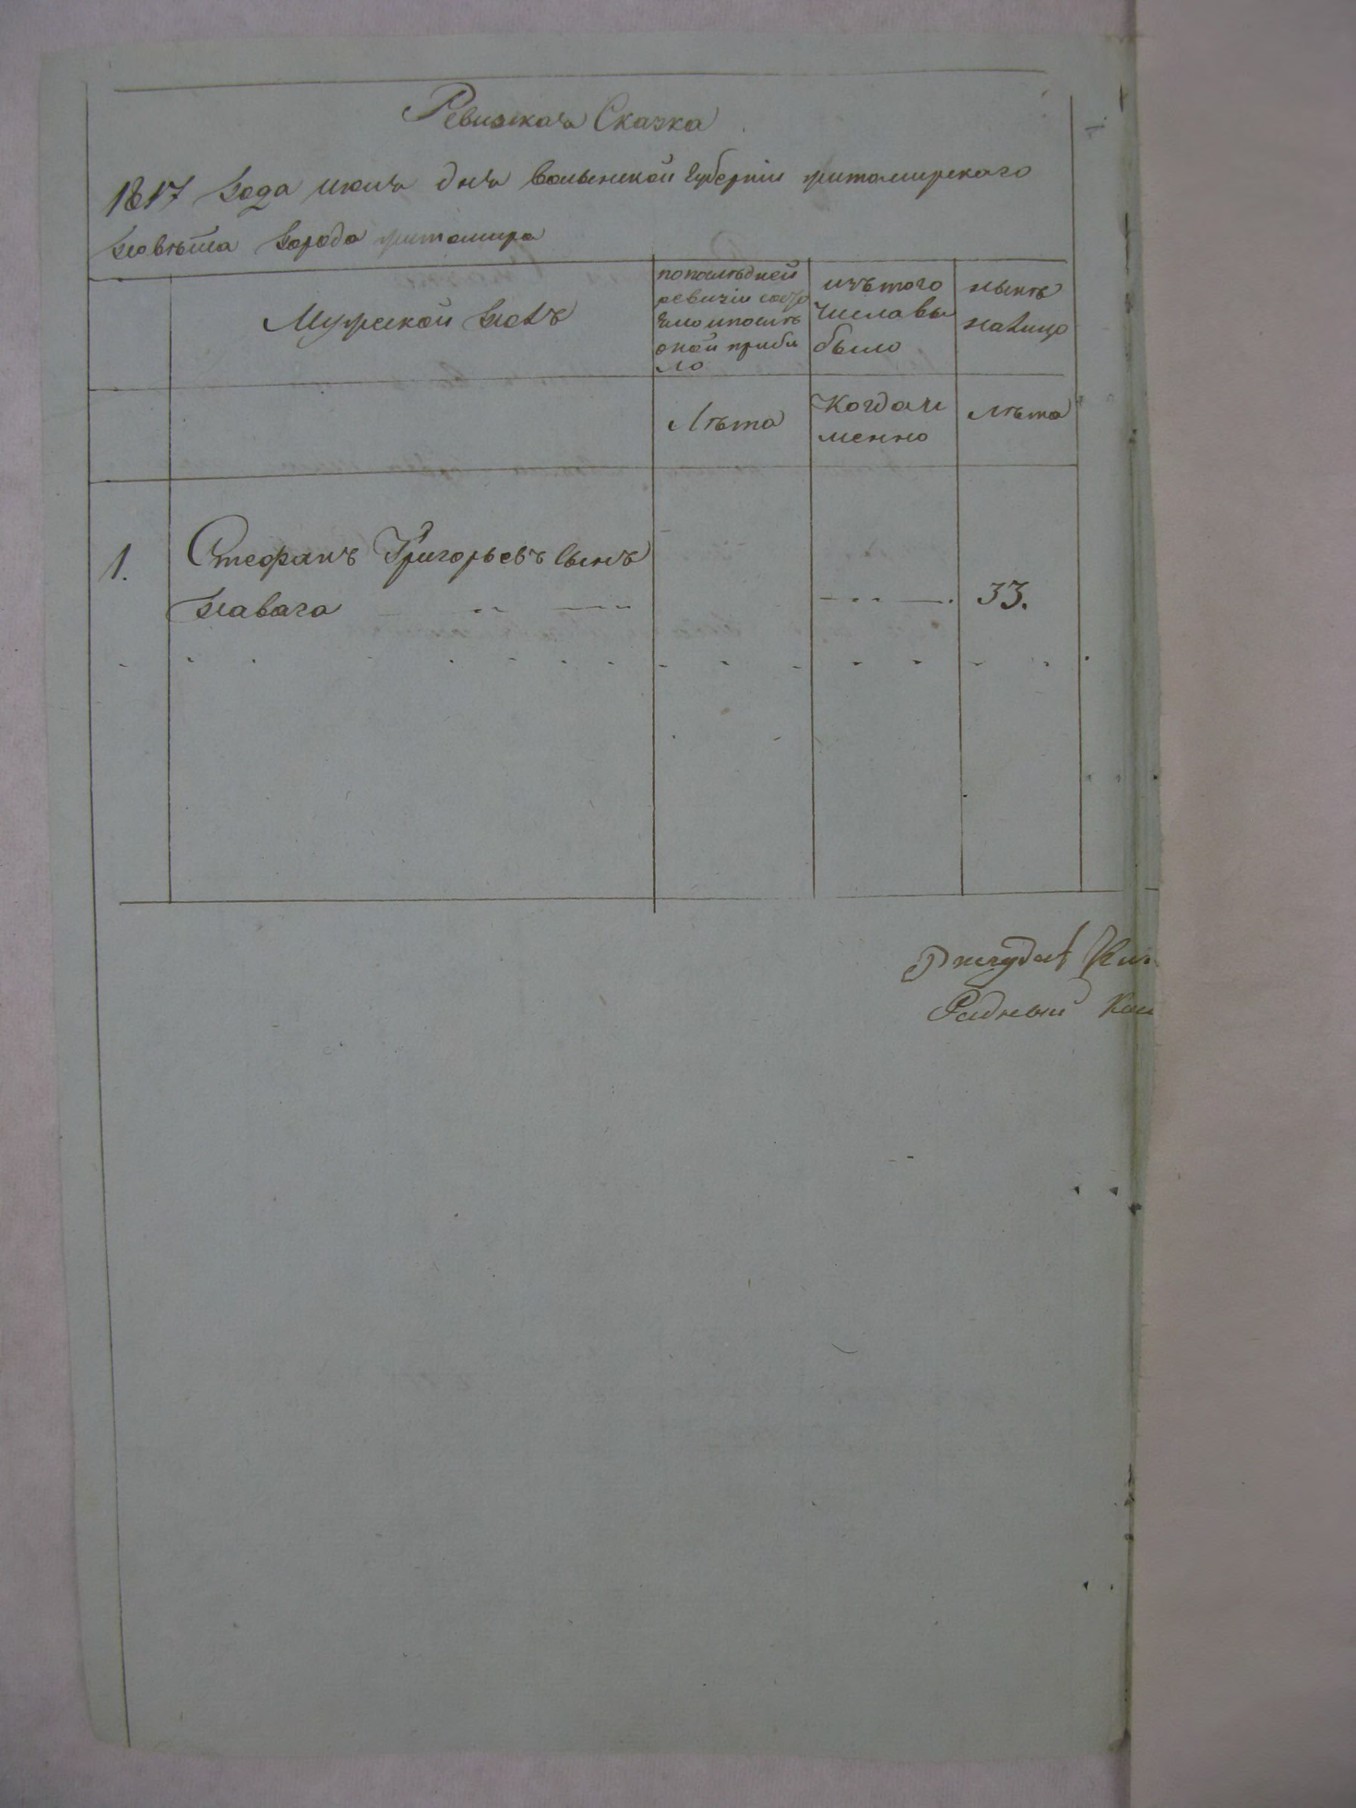 Ревизская Сказка
1817 года июля дня волынской губернии житомирского
повѣта города житомира
Мужеской полъ
по последней
ревизіи состо
яло и послѣ
оной прибы
ло
изъ того
числа вы
было
нынѣ
на лицо
Лѣта
Когда и
менно
Лѣта
1.
Стефанъ Григорьевъ сынъ
33.